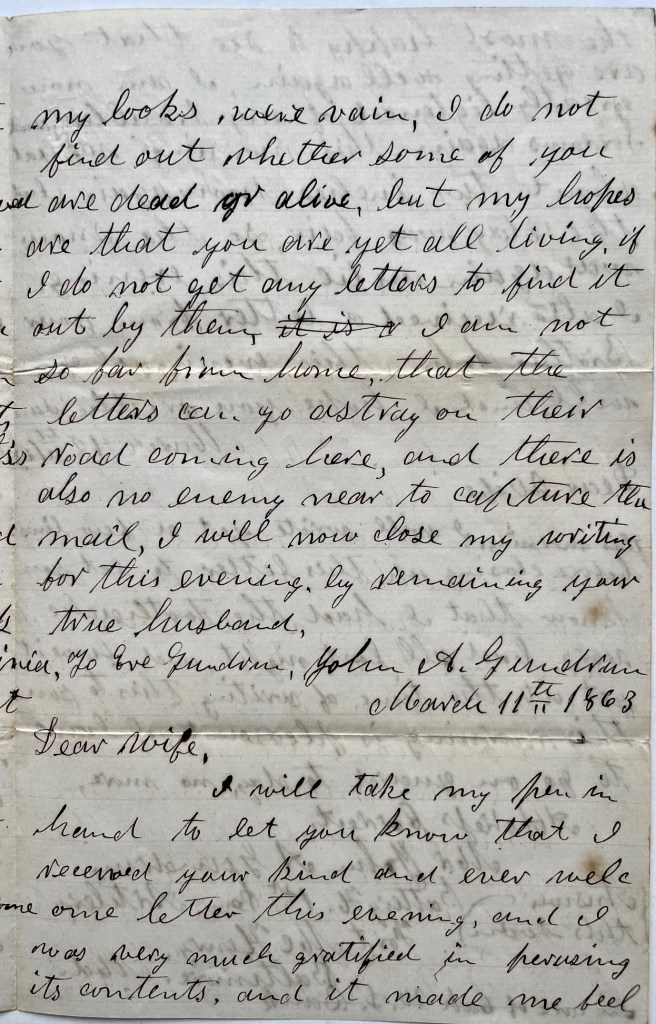 my looks, were vain, I do not
find out whether some of you
are dead or alive, but my hopes
are that you are yet all living, if
I do not get any letters to find it
out by them, it is I am not
so far from home, that the
letters can go astray on their
road coming here, and there is
also no enemy near to capture the
mail, I will now close my writing
for this evening, by remaining your
true husband,
To Eve Gundrum, John A. Gundrum
March 11th 1863
Dear Wife,
I will take my pen in
hand to let you know that I
received your kind and ever welc
ome letter this evening, and I
was very much gratified in perusing
its contents, and it made me feel